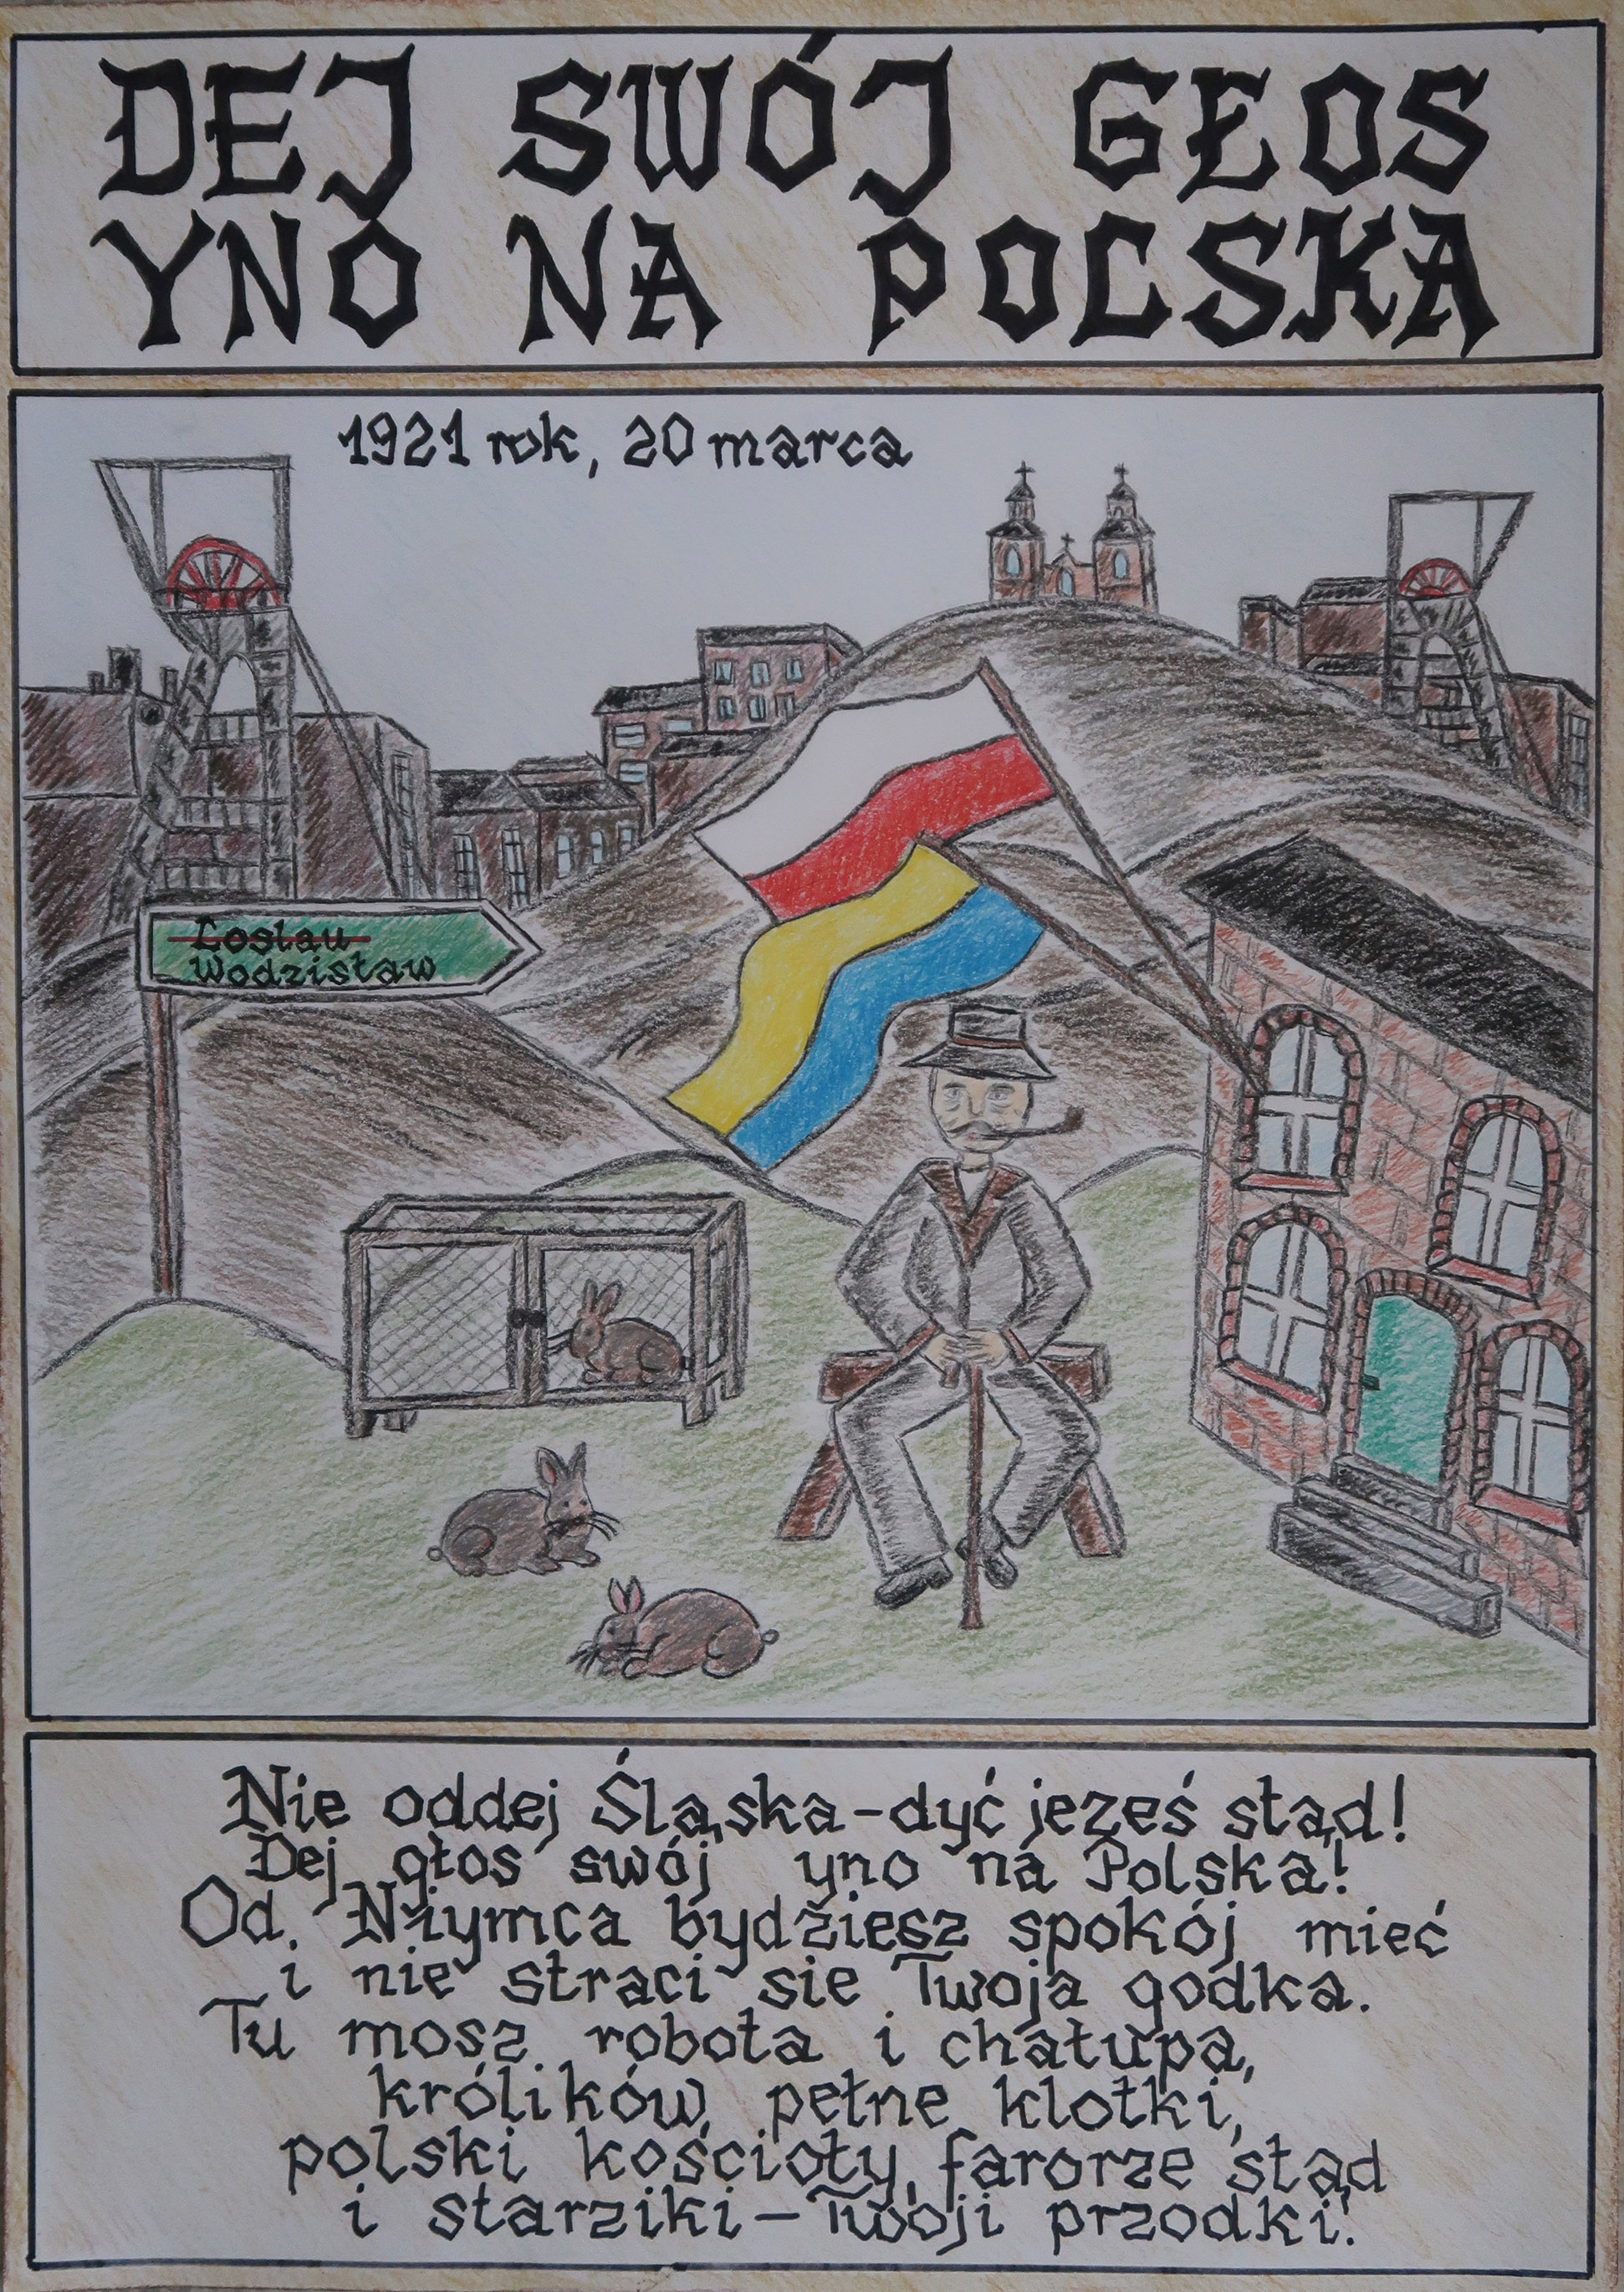 DEJ SWÓJ GŁOS
YNO NA POLSKA
1921 rok, 20 marca
Loslau
Wodzisław
Nie oddej Śląska-dyć jeześ stąd!
Dej głos swój yno na Polska!
Od Niymca bydziesz spokój mieć
i nie straci sie Twoja godka.
Tu mosz robota i chałupa,
królików pełne klotki,
polski kościoły, farorze stąd
i starziki-Twoji przodki!